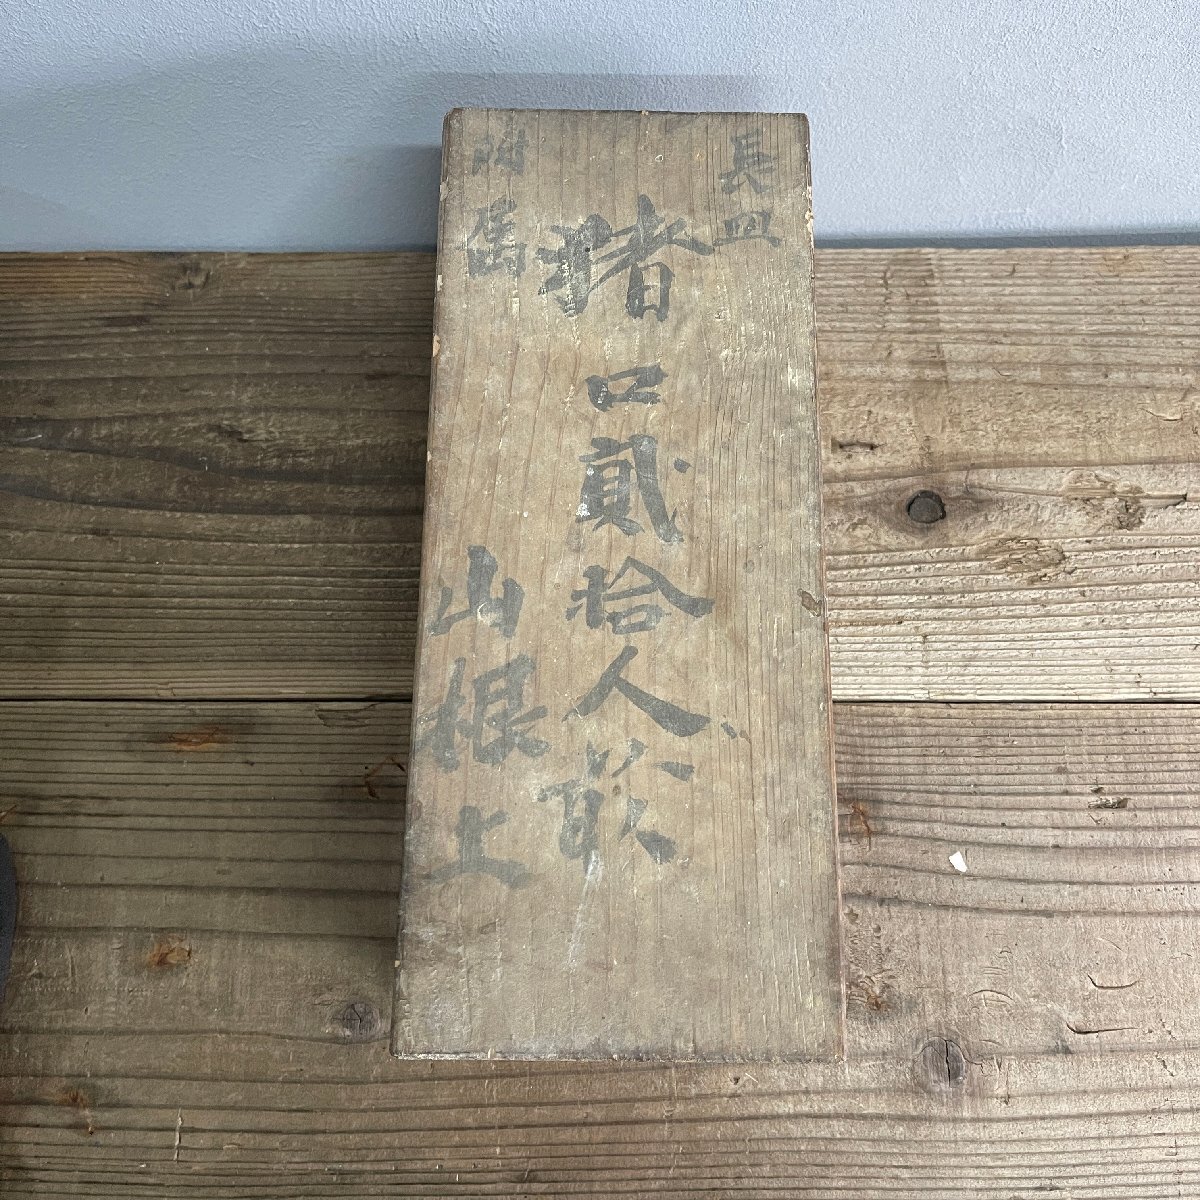 長皿
猪口貳拾人前
附属
山根上